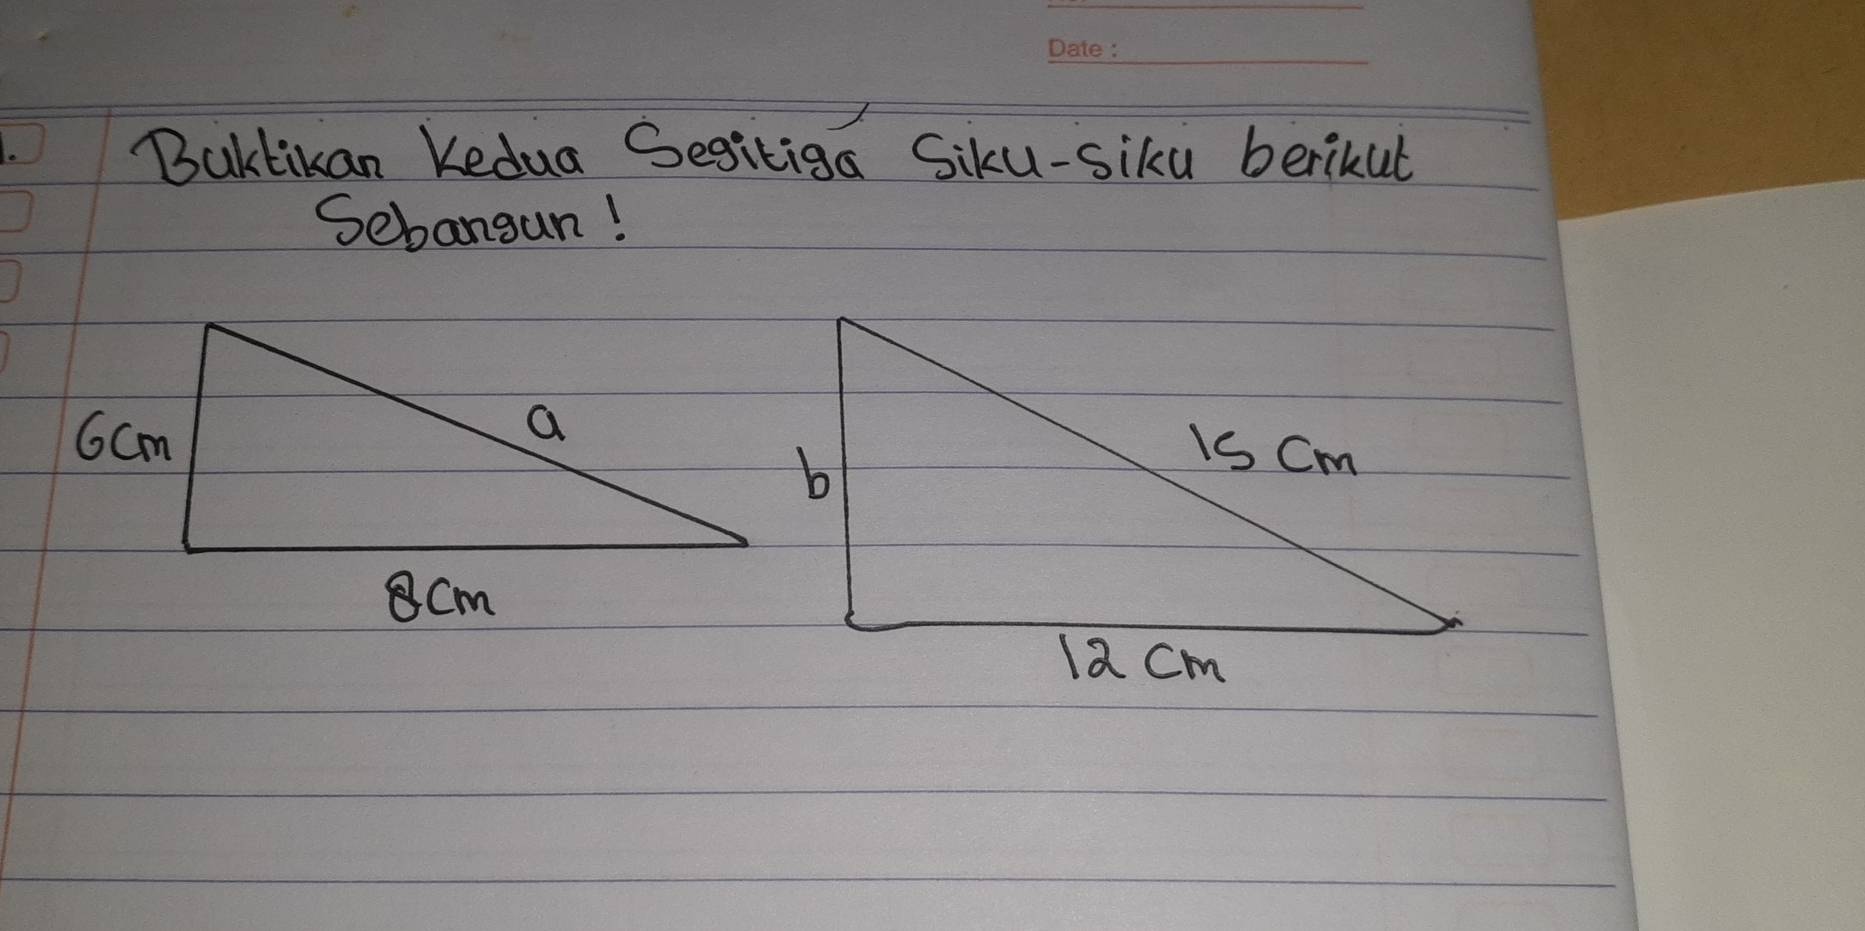 Date :
1. Buktikan Kedua Segitiga Siku-siku berikut
Sebangun !
6 cm
a
8 cm
b
15 cm
12 cm